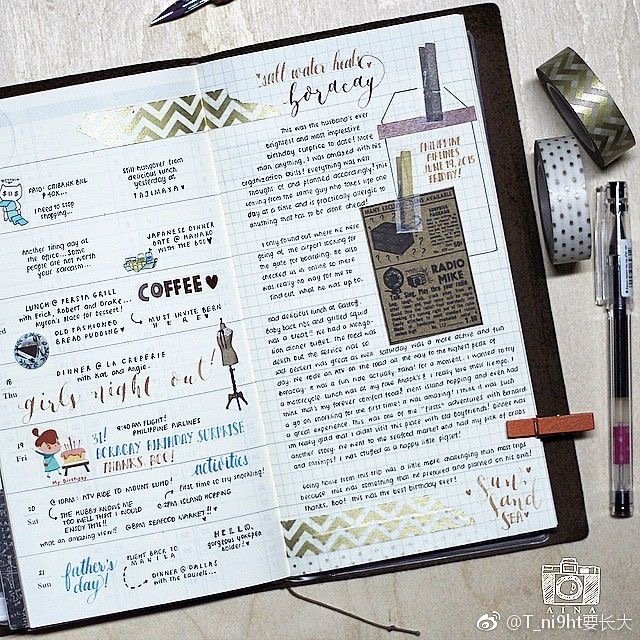 PAID! CITIBANK BILL
I need to stop
shopping...
Still hungover from
delicious lunch
yesterday at
TAJIMAYA
Mother tiring day at
the office... Some
people are not worth
your sarcasm...
JAPANESE DINNER
DATE @ HANAKO
WITH THE BSC
LUNCH @ PERSIA GRILL
with Erick, Robert and Drake...
Myron's Place for Dessert!
COFFEE
OLD FASHIONED
BREAD PUDDING
MUST INVITE BERN
HERE
Thu
DINNER @ LA CREPERIE
with Kat and Angie.
girls night out!
19
Fri
My Birthday
31!
9:10AM FLIGHT!
PHILIPPINE AIRLINES
BORACAY BIRTHDAY SURPRISE
THANKS, BOO!
activities
20
Sat
@ 10AM: ATV RIDE TO MOUNT LUHO!
first time to try snorkeling!
THE HUBBY KNOWS ME
TOO WELL THAT I WOULD
ENJOY THIS!!
what an amazing view!!
@ 2PM: ISLAND HOPPING
@ 6PM: SEAFOOD MARKET!!
21
Sun
father's
day!
FLIGHT BACK TO
MANILA
DINNER @ DALLAS
with the Laurels...
HELLO,
gorgeous yakepen
holder!
salt water heals
boracay
This was the husband's ever
brightest and most impressive
birthday surprise to date! More
than anything, I was amazed with his
organization skills! Everything was well
thought of and planned accordingly! This
coming from the same guy who takes life one
day at a time and is practically allergic to
anything that has to be done ahead!
I only found out where we were
going at the airport looking for
the gate for boarding. He also
checked us in online so there
was really no way for me to
find out what he was up to.
PHILIPPINE
AIRLINES
JUNE 19, 2015
FRIDAY!
RADIO
MIKE
Had delicious lunch at Gasthof
baby back ribs and grilled squid
was a treat!! We had a Mongo-
lian dinner buffet. The food was
delish but the service was so
sad! Dessert was great as well. Saturday was a more active and fun
day. We rode an ATV on the road all the way to the highest peak of
Boracay! It was a fun ride actually! Panic for a moment. I wanted to try
a motorcycle. Lunch was at my fave Andok's! I really love their liempo. I
think that's my forever comfort food! Went island hopping and even had
a go on snorkeling for the first time! It was amazing! I think it was such
a great experience. This was one of the "firsts" adventures with Bernard.
I'm really glad that I didn't visit this place with old boyfriends! Dinner was
another story. We went to the seafood market and had my pick of crabs
and shrimps! I was stuffed as a happy little piglet!
Going home from this trip was a little more challenging than most trips
because this was something that he prepared and planned on his own!
Thanks, Boo! This was the best birthday ever!
Sun,
Sand
SEA
AINA
@T_ni9ht要长大